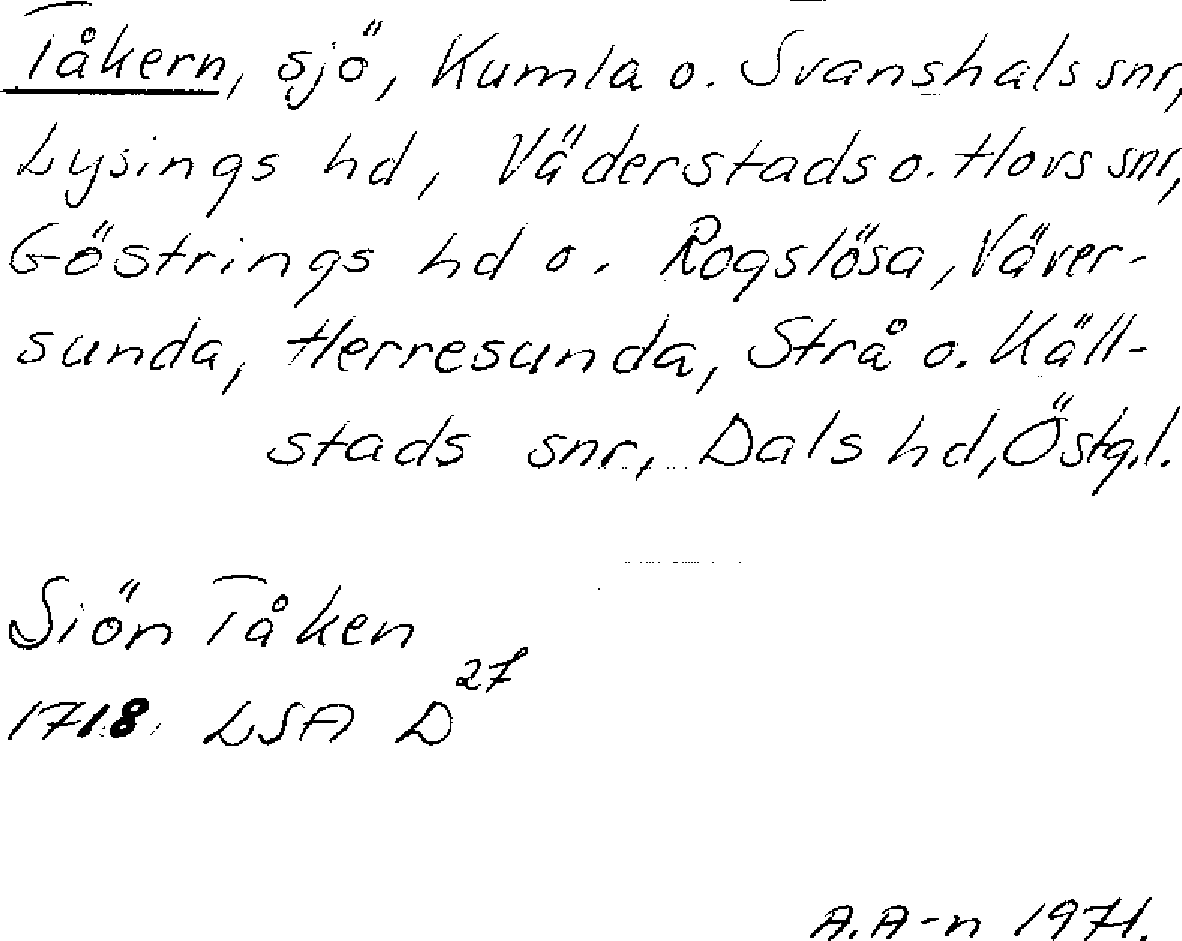 Tåkern, sjö, Kumla o. Svanshals snr,
Lysings hd, Väderstads o. Hovs snr,
Göstrings hd o. Rogslösa, Väver-
sunda, Herresunda, Strå o. Käll-
stads snr, Dals hd, Östg.l.
Siön Tåken
1718 LSA D 27
A.A-n 1971.